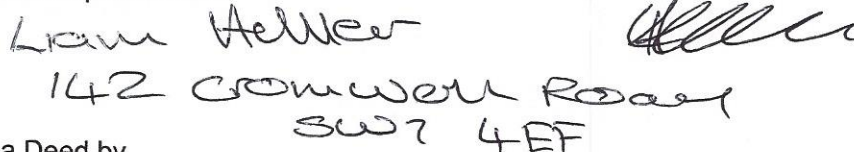 Liam
142 Cromwell Road
SW7 4EF
a Deed by